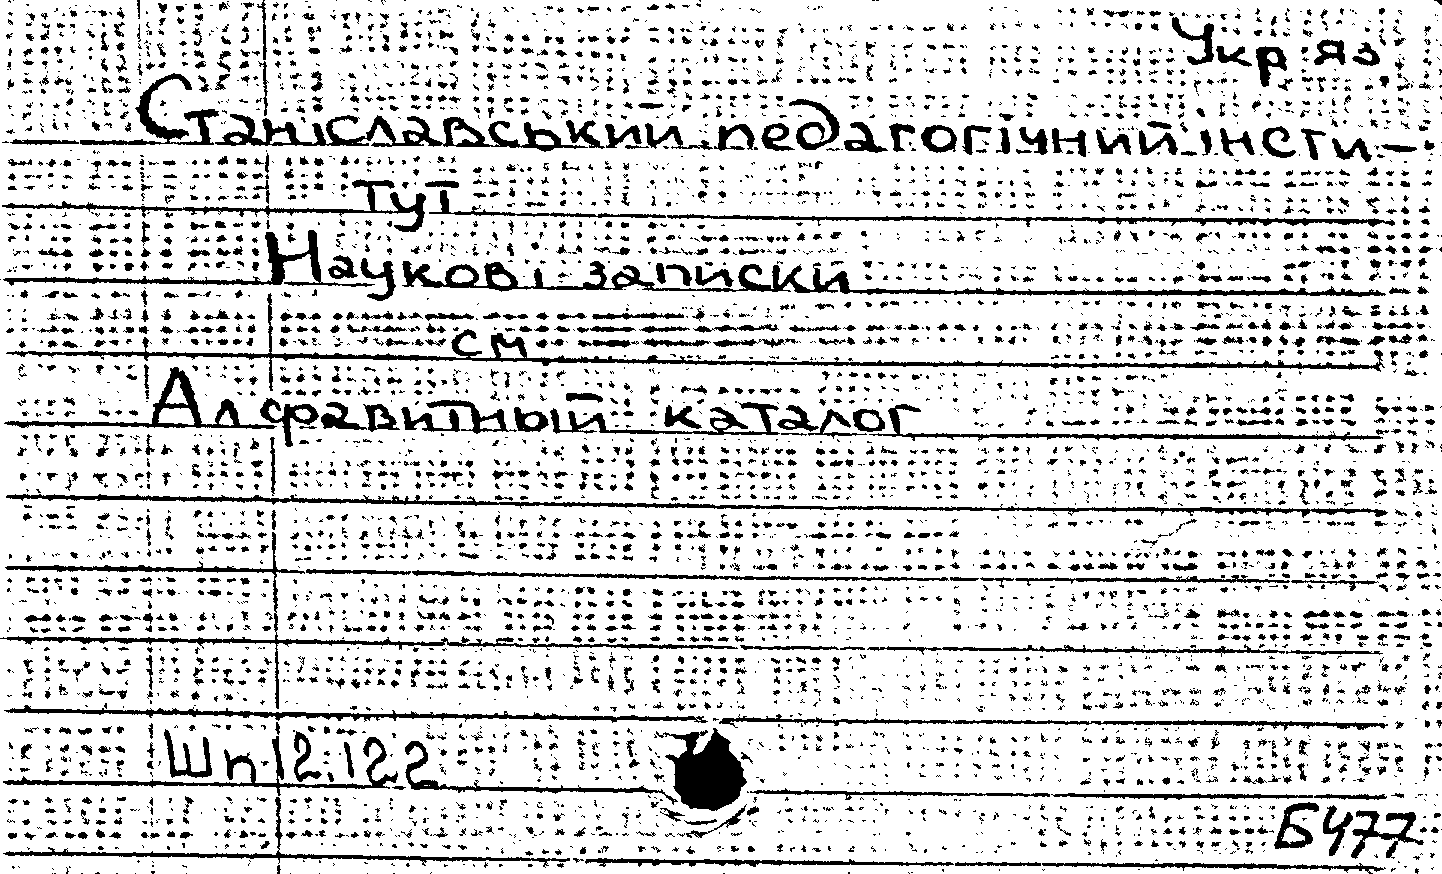 Укр яз.
Станіславський педагогічний інсти-
тут
Наукові записки
см
Алфавитный каталог
Шп 12.122
Б477